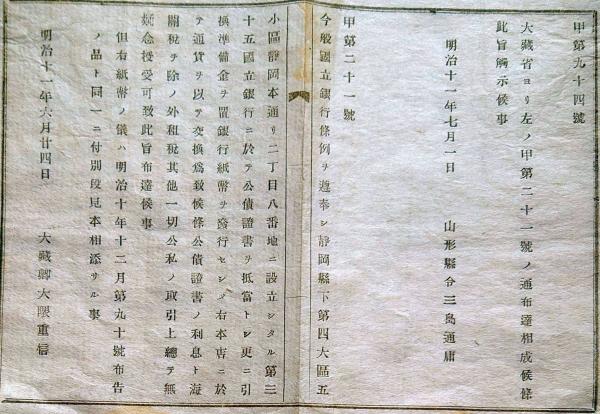 甲第九十四號
大藏省ヨリ左ノ甲第二十一號ノ通布達相成候條
此旨觸示候事
明治十一年七月一日　山形縣令三島通庸
甲第二十一號
今般國立銀行條例ヲ遵奉シ靜岡縣下第四大區五
小區靜岡本通リ二丁目八番地ニ設立シタル第三
十五國立銀行ニ於テ公債證書ヲ抵當トシ更ニ引
換準備金ヲ置銀行紙幣ヲ發行セシメ右本店ニ於
テ通貨ヲ以テ交換爲致候條公債證書ノ利息ト海
關稅ヲ除ノ外租稅其他一切公私ノ取引上總テ無
疑念授受可致此旨布達候事
但右紙幣ノ儀ハ明治十年十二月第九十號布告
ノ品ト同一ニ付別段見本相添サル事
明治十一年六月廿四日　大藏卿大隈重信